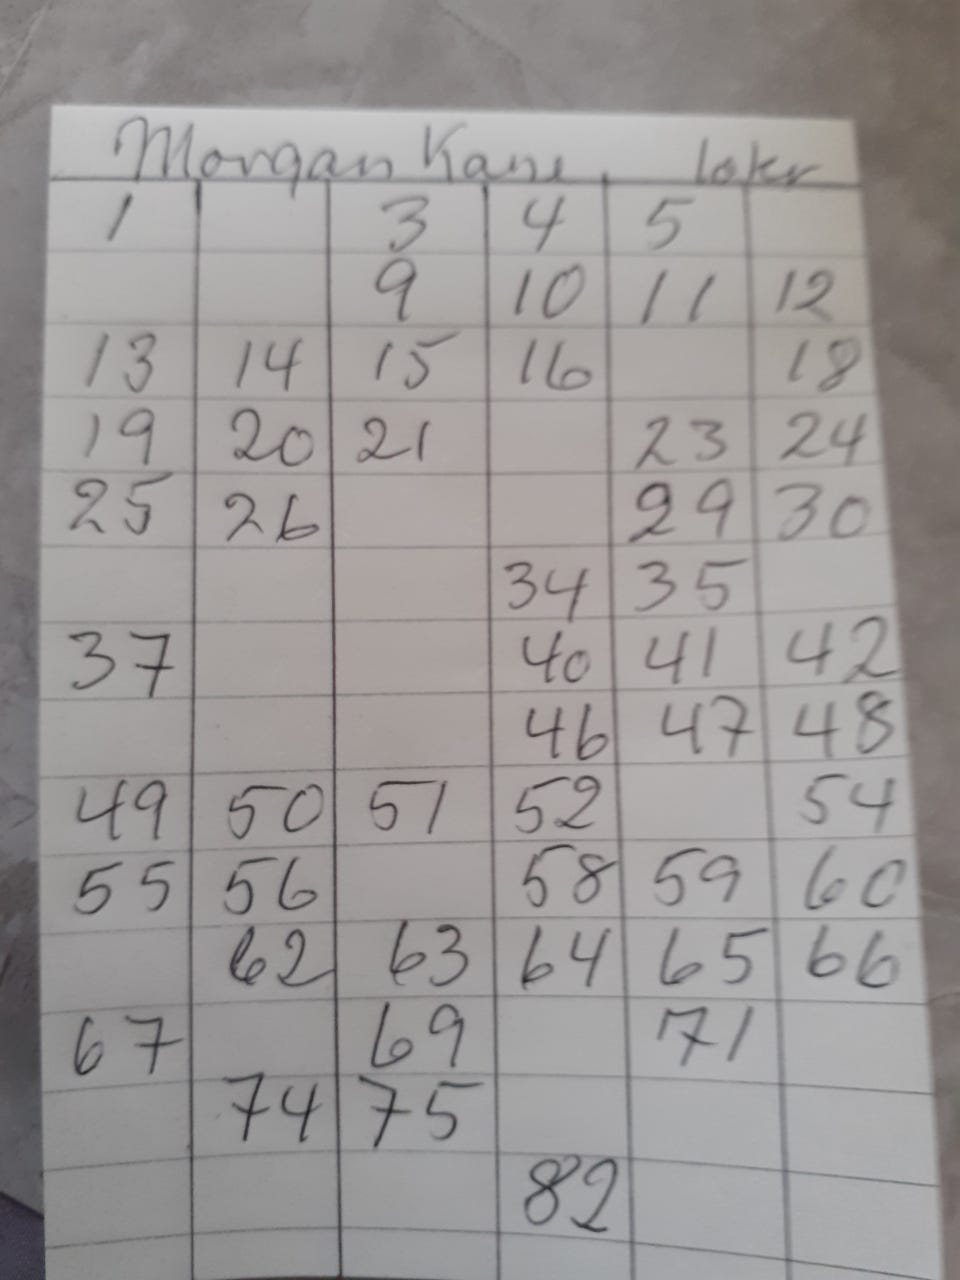 Morgan Kane
1 3 4 5
9 10 11 12
13 14 15 16 18
19 20 21 23 24
25 26 29 30
34 35
37 40 41 42
46 47 48
49 50 51 52 54
55 56 58 59 60
62 63 64 65 66
67 69 71
74 75
82